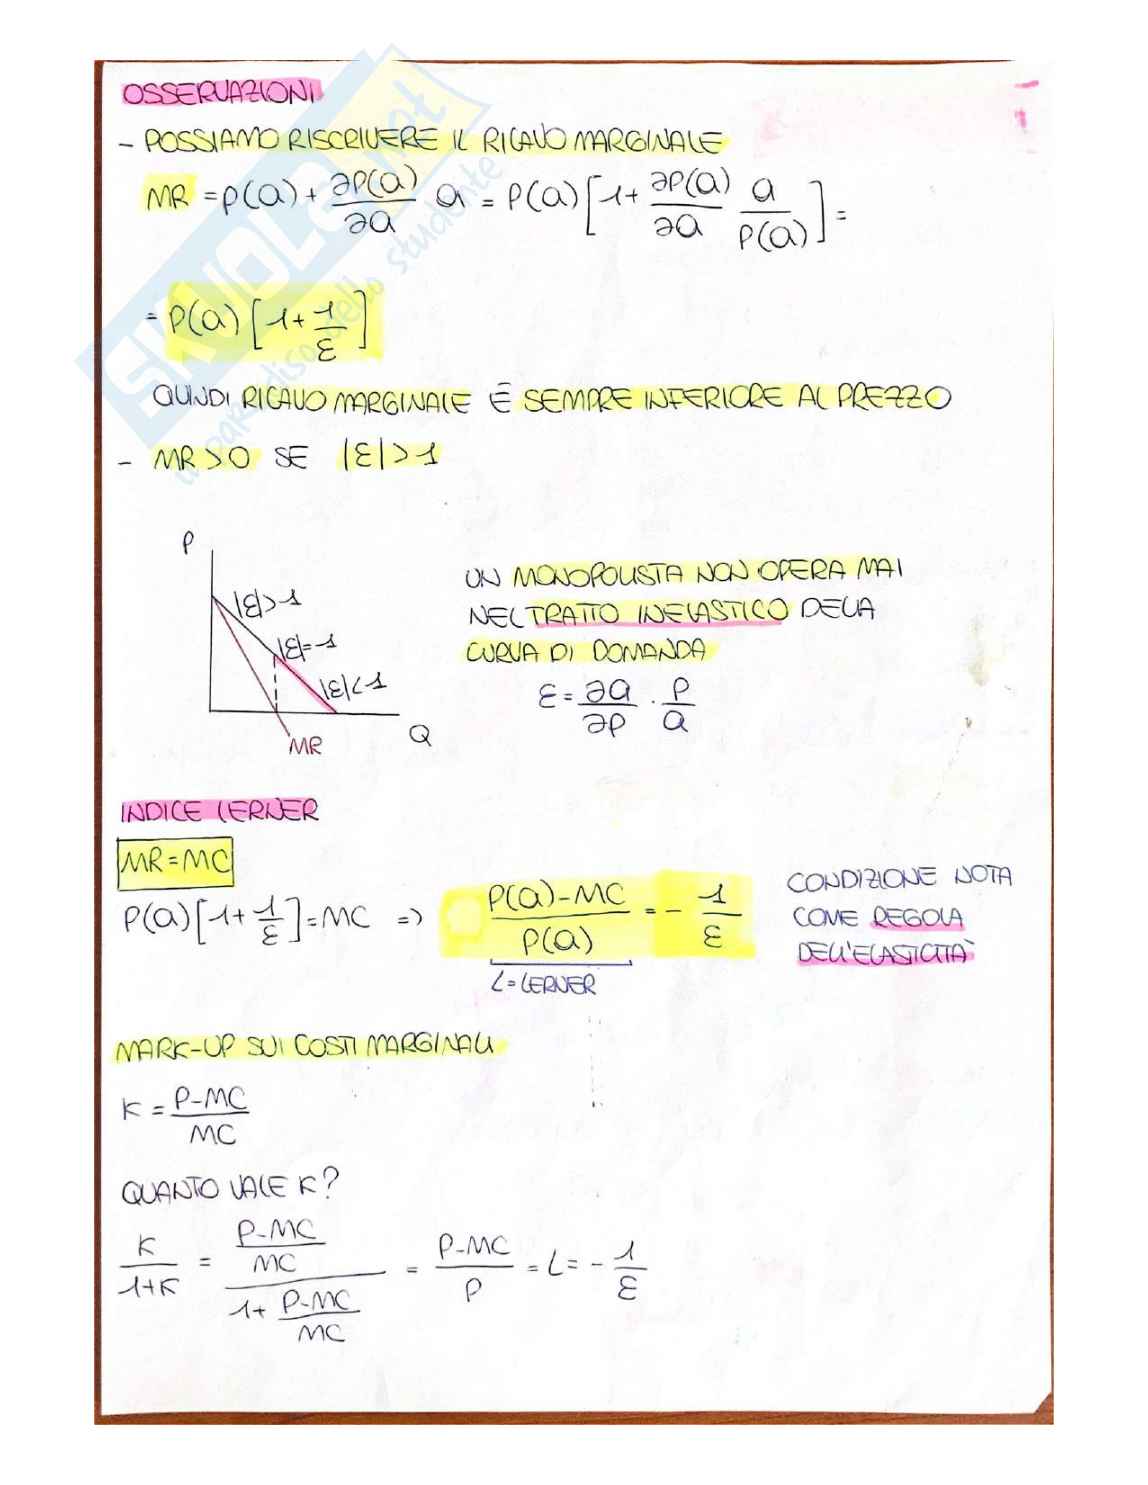 OSSERVAZIONI
- POSSIAMO RISCRIVERE IL RICAVO MARGINALE
MR = P(Q) + ∂P(Q)/∂Q Q = P(Q) [1 + ∂P(Q)/∂Q Q/P(Q)] =
= P(Q) [1 + 1/ε]
QUINDI RICAVO MARGINALE È SEMPRE INFERIORE AL PREZZO
- MR > 0 SE |ε| > 1
P
|ε|>1
|ε|=1
|ε|<1
MR
Q
UN MONOPOLISTA NON OPERA MAI
NEL TRATTO INELASTICO DELLA
CURVA DI DOMANDA
ε = ∂Q/∂P · P/Q
INDICE LERNER
MR = MC
P(Q) [1 + 1/ε] = MC => P(Q) - MC / P(Q) = - 1/ε
L = LERNER
CONDIZIONE NOTA
COME REGOLA
DELL'ELASTICITÀ
MARK-UP SUI COSTI MARGINALI
K = P-MC / MC
QUANTO VALE K?
K / 1+K = (P-MC / MC) / (1 + P-MC / MC) = P-MC / P = L = - 1/ε
SKUOLA.net
il paradiso dello studente